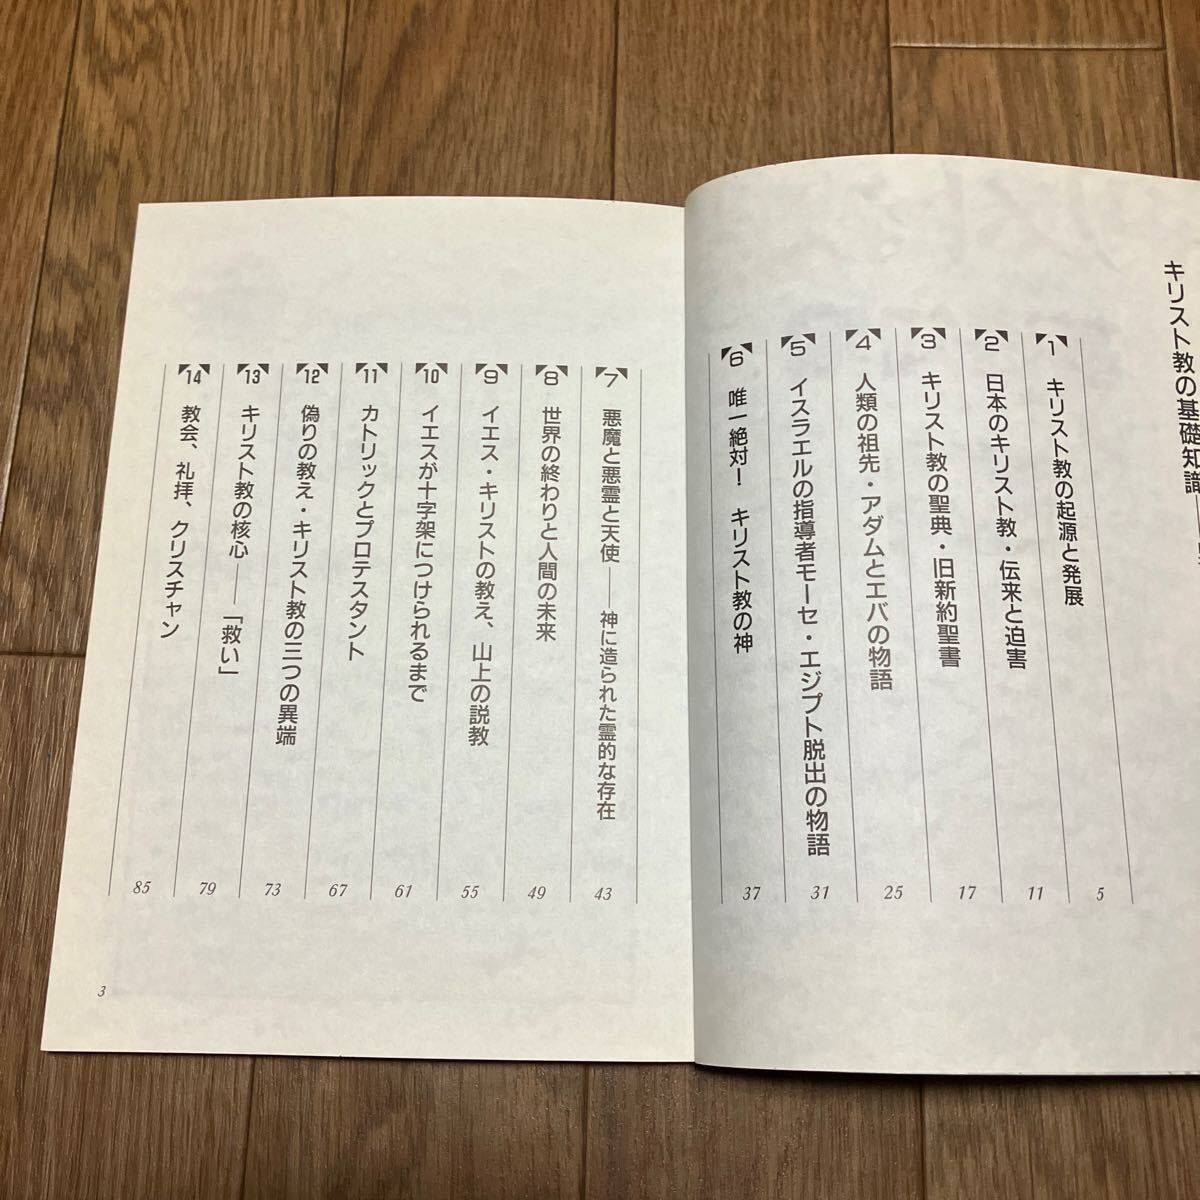 キリスト教の基礎知識
1 キリスト教の起源と発展 5
2 日本のキリスト教・伝来と迫害 11
3 キリスト教の聖典・旧新約聖書 17
4 人類の祖先・アダムとエバの物語 25
5 イスラエルの指導者モーセ・エジプト脱出の物語 31
6 唯一絶対！ キリスト教の神 37
7 悪魔と悪霊と天使 ── 神に造られた霊的な存在 43
8 世界の終わりと人間の未来 49
9 イエス・キリストの教え、山上の説教 55
10 イエスが十字架につけられるまで 61
11 カトリックとプロテスタント 67
12 偽りの教え・キリスト教の三つの異端 73
13 キリスト教の核心 ── 「救い」 79
14 教会、礼拝、クリスチャン 85
3